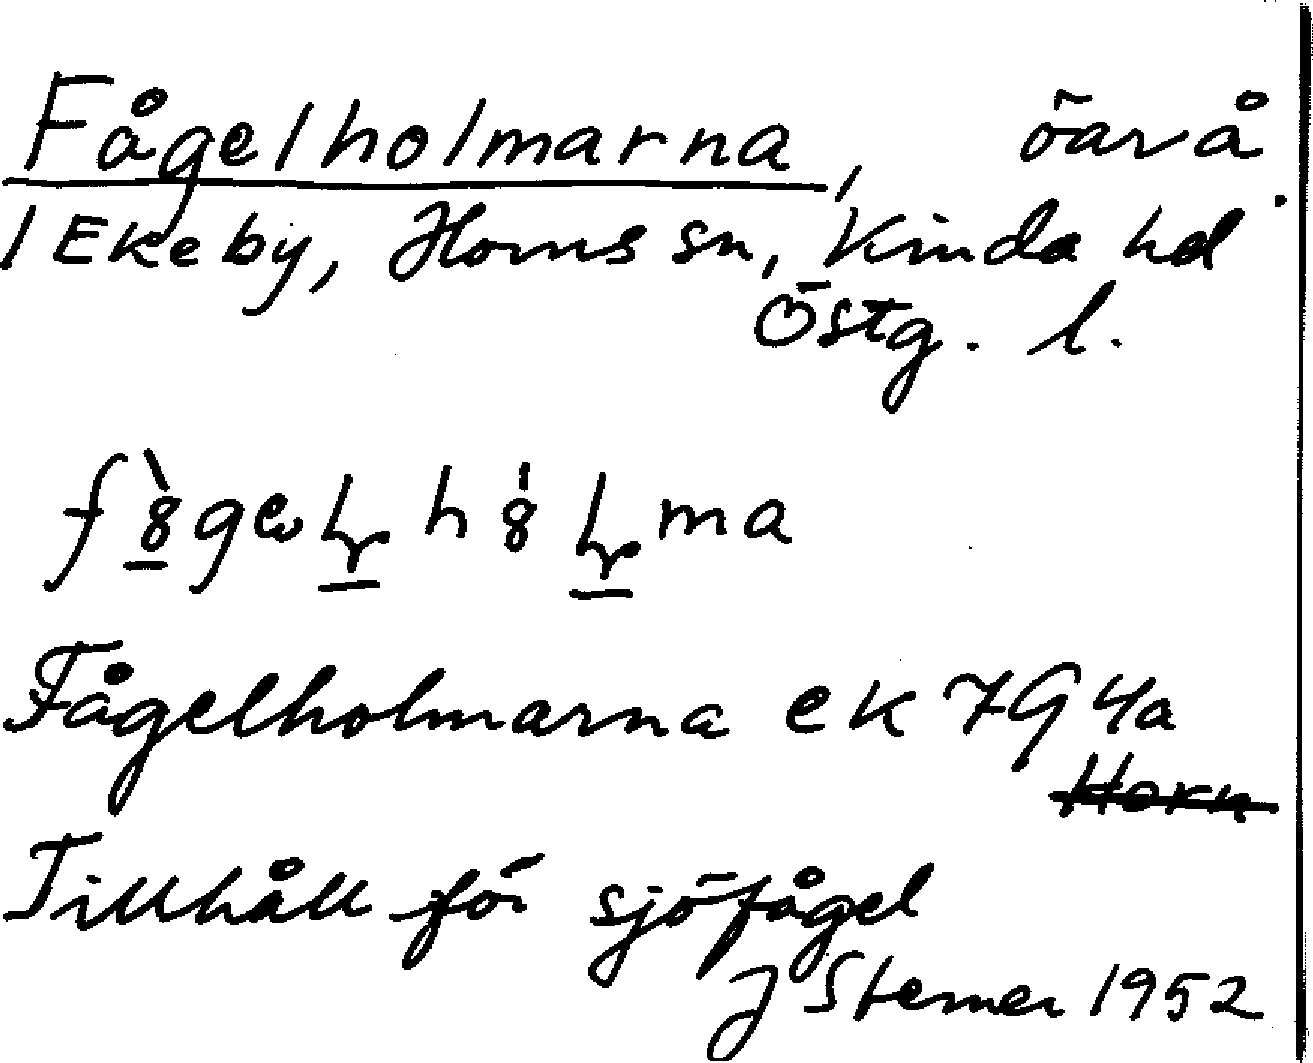 Fågelholmarna, öar å
/ Ekeby, Horns sn, Kinda hd.
Östg. l.
Fågelholmarna ek 7G 4a
Horn
Tillhåll för sjöfågel
J Sterner 1952